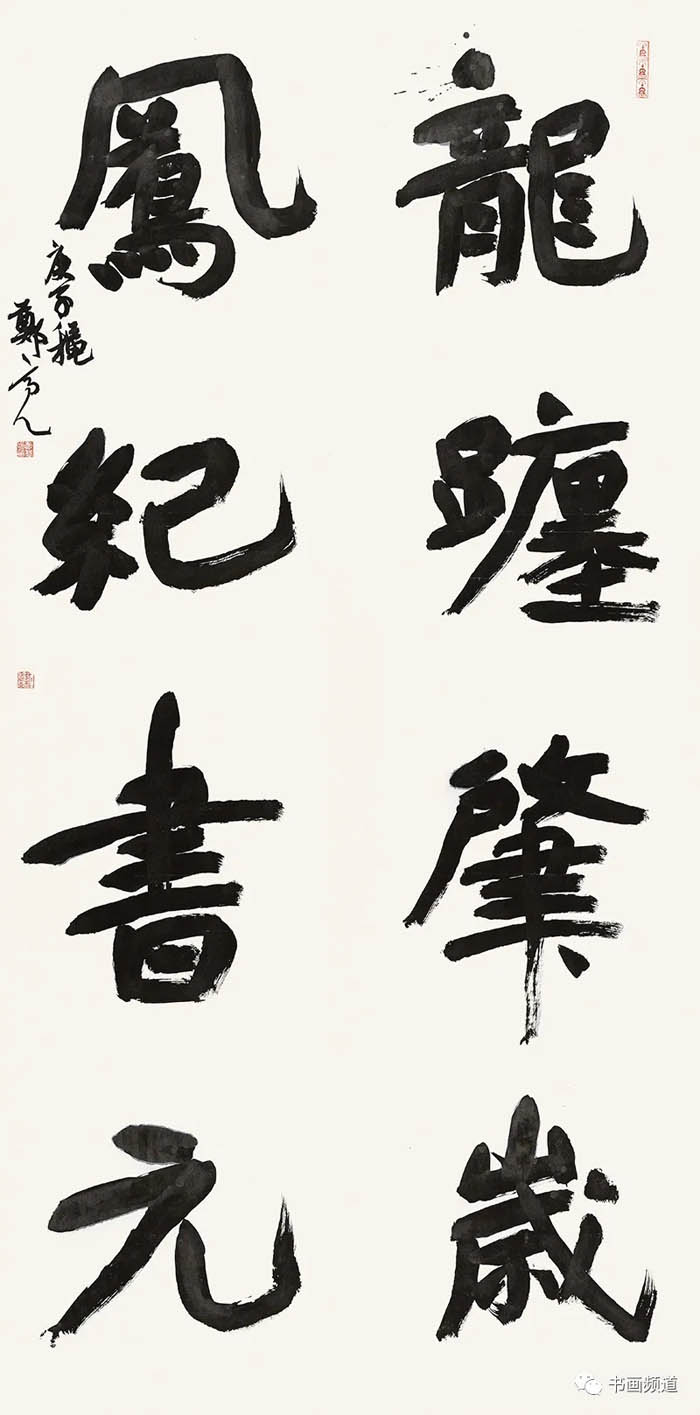 龍躔肇歲
鳳紀書元
庚子穐
鄭
书画频道